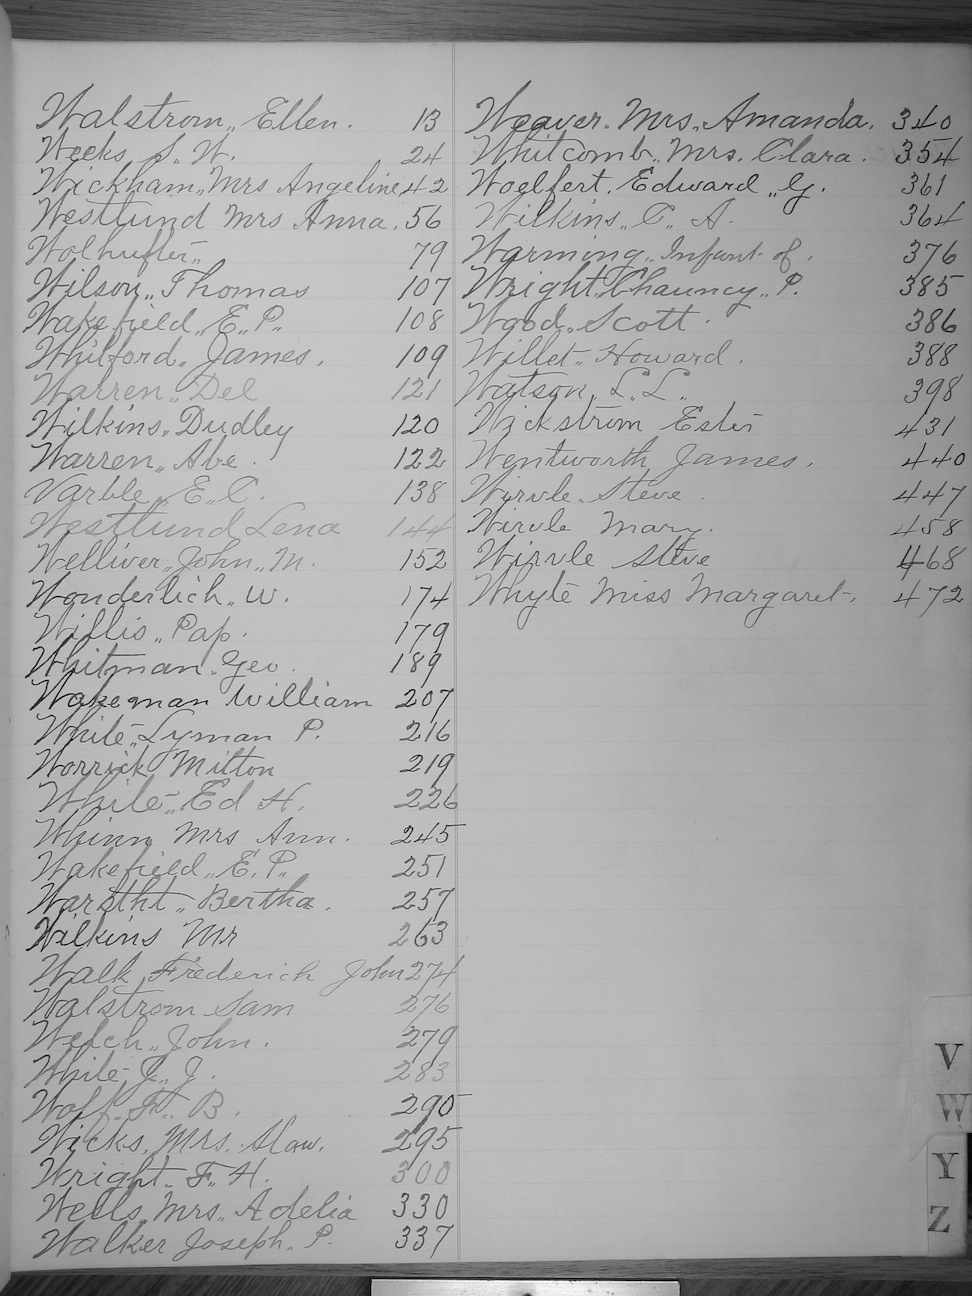 Walstrom,, Ellen. 13
Weeks, S. W. 24
Wickham,, Mrs Angeline 42
Westlund Mrs Anna. 56
79
Wilson,, Thomas 107
Wakefield,, E. P. 108
Whitford,, James. 109
Warren,, Del 121
Wilkins,, Dudley 120
Warren,, Abe. 122
Varble,, E. C. 138
Westlund Lena 144
Welliver,, John,, M. 152
Wonderlich,, W. 174
Willis,, Pap. 179
Whitman,, Geo. 189
Wakeman William 207
White,, Lyman P. 216
Worrick, Milton 219
White,, Ed H. 226
Whinn Mrs Ann. 245
Wakefield,, E. P. 251
Bertha. 257
Wilkins Mr 263
Walk, Frederich John 274
Walstrom Sam 276
Welch,, John. 279
White, J. J. 283
Wolf,, F. B. 290
Wicks, Mrs. 295
Wright,, F. H. 300
Wells, Mrs,, Adelia 330
Walker Joseph,, P. 337
Weaver. Mrs,, Amanda. 340
Whitcomb,, Mrs. Clara. 354
Woelfert. Edward,, G. 361
Wilkins,, C. A. 364
Warming,, Infant of. 376
Wright,, Chauncy,, P. 385
Wood,, Scott. 386
Willet,, Howard. 388
Watson, L. L. 398
Wickstrom Ester 431
Wentworth, James. 440
Wirvle. Steve. 447
Wirvle Mary. 458
Wirvle Steve 468
Whyte Miss Margaret. 472
V
W
Y
Z